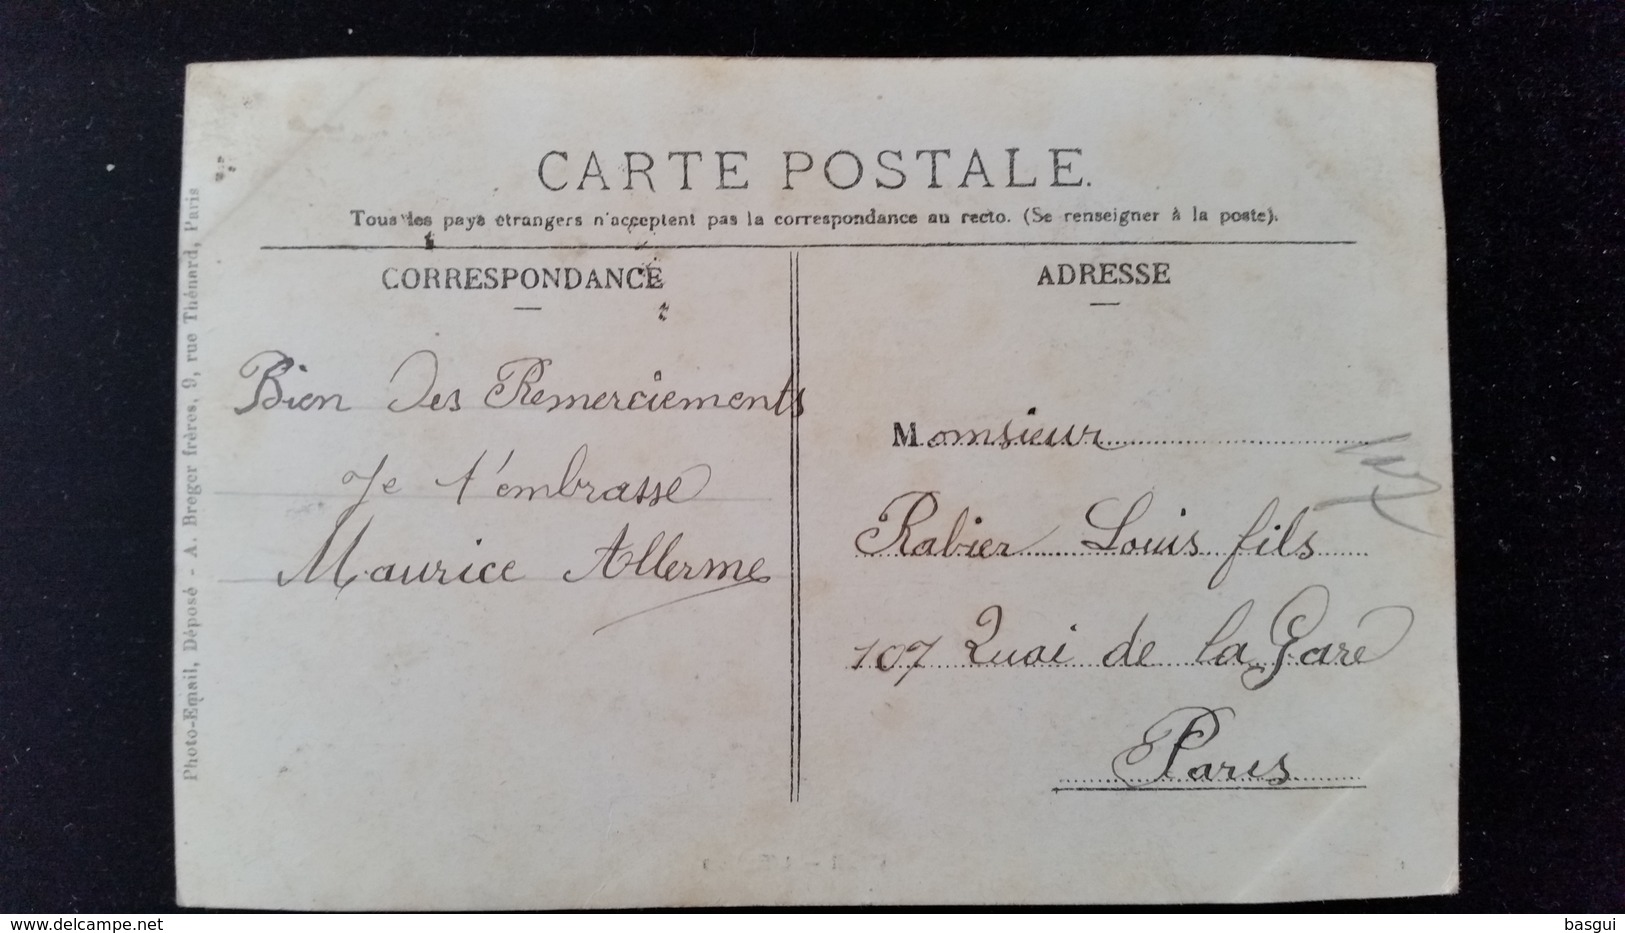 CARTE POSTALE.
Tous les pays étrangers n'acceptent pas la correspondance au recto. (Se renseigner à la poste).
CORRESPONDANCE
Bien Des Remerciements
Je t'embrasse
Maurice Allerme
ADRESSE
Monsieur
Rabier Louis fils
107 Quai de la Gare
Paris
Photo-Email, Déposé - A. Breger frères, 9, rue Thénard, Paris
delcampe.net
basgui